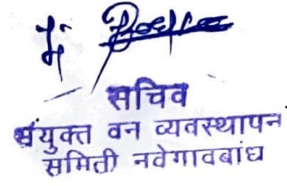 सचिव
संयुक्त वन व्यवस्थापन
समिती नवेगावबांध